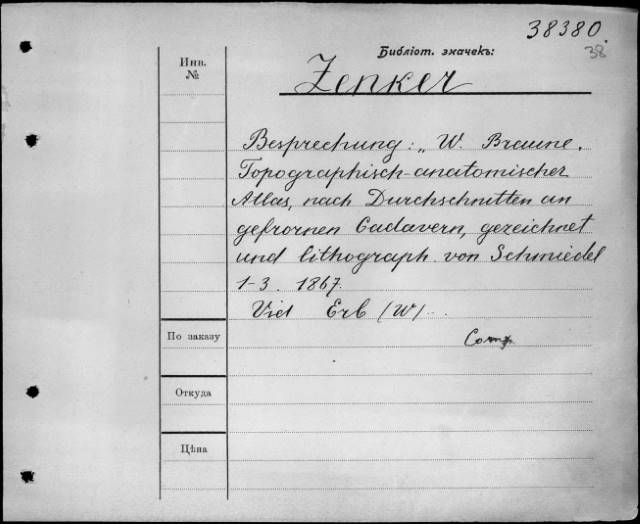 38380.
38
Библіот. значекъ:
Инв.
№
Zenker
Besprechung: „ W. Braune.
Topographisch-anatomischer
Atlas, nach Durchschnitten an
gefrornen Cadavern, gezeichnet
und lithograph. von Schmiedel
1-3. 1867.
Vid Erb (W)..
По заказу
Откуда
Цѣна